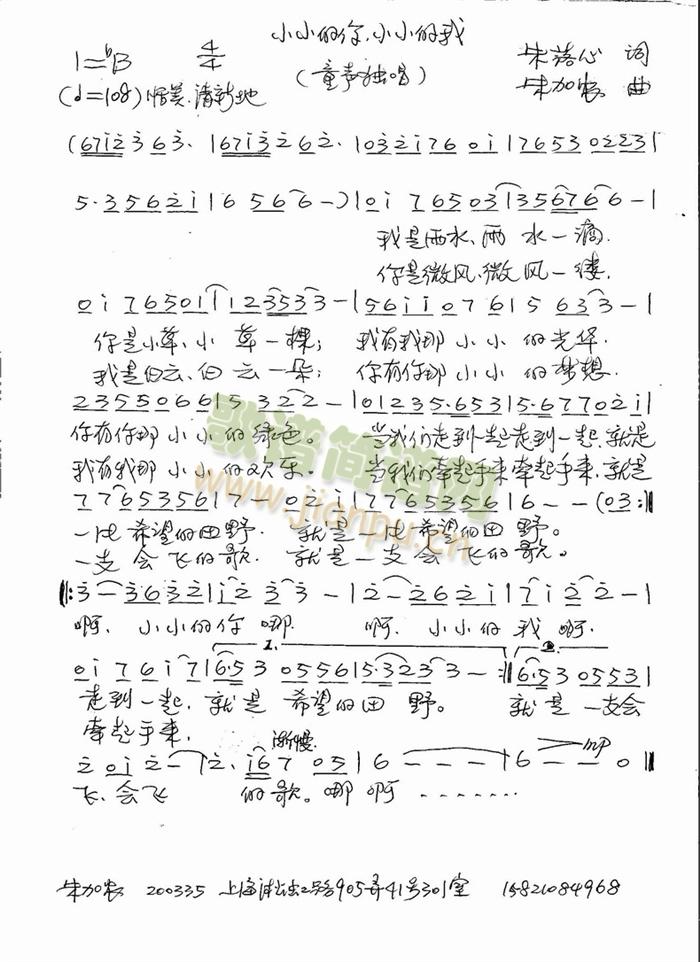 小小的你,小小的我
1=ᵇB 4/4 (童声独唱) 朱落心 词
(♩=108) 恬美.清新地 朱加农 曲
(67i23 63. |67i32 62. |032i76 0i |7653 0223|
5·3562i|6 566 -)|0i 76503|356766 -|
我是雨水、雨 水一滴.
你是微风、微 风一缕.
0i 76501|123533 -|56ii07 61|5 633 -|
你是小草、小 草一棵; 我有我那 小小 的光华.
我是白云、白 云一朵; 你有你那 小小 的梦想.
2355066|5 322 -|01235·653|5·67702i|
你有你那 小小 的绿色。 当我们走到一起走到一起.就是
我有我那 小小 的欢乐。 当我们牵起手来牵起手来.就是
77653561|7 - 02i|77653561|6 - - (03:‖
一片 希望的田野. 就是一片 希望的田野。
一支 会 飞的歌. 就是一支 会 飞的歌。
‖:3 - 3632|i2 33 - |2 - 262i|7i22 -|
啊. 小小的你 哪. 啊. 小小的 我 啊.
1. 2.
0i 76i7|6·53 05561|5·3233 - :‖6·53 05531|
走到一起. 就是 希望的田 野。 就是 一支会
牵起手来.
渐慢. mp
2 0i2 - |2. i67 05|6 - - - |6 - - 0‖
飞.会飞 的歌。哪 啊 .......
歌谱简谱网
www.jianpu.cn
朱加农 200335 905弄41号301室 15821084968